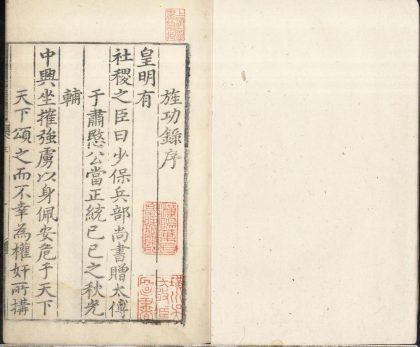 旌功錄序
皇明有
社稷之臣曰少保兵部尚書贈太傅
于肅愍公當正統己巳之秋光
輔
中興坐摧強虜以身佩安危于天下
天下頌之而不幸為權奸所搆